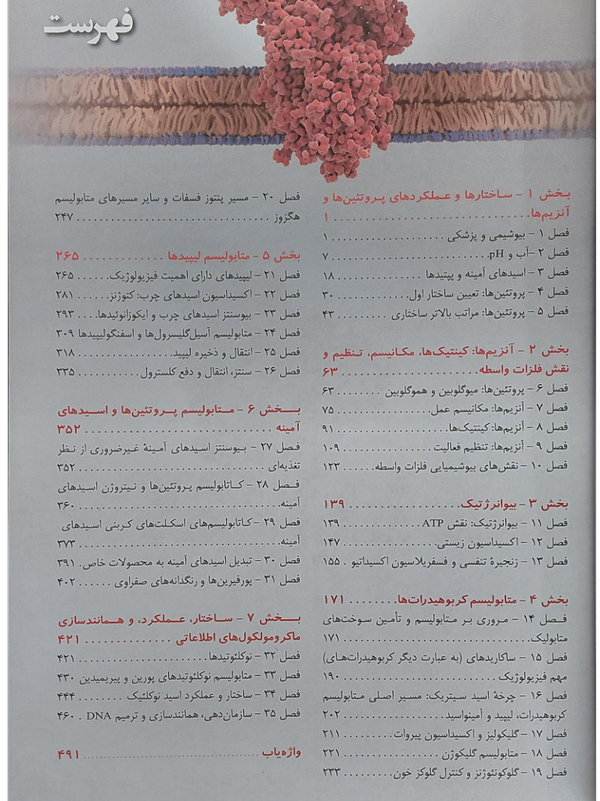 فهرست
بخش ۱ - ساختارها و عملکردهای پروتئین‌ها و
آنزیم‌ها. . . . . . . . . . . . . . . . . . . . . . . . ۱
فصل ۱ - بیوشیمی و پزشکی . . . . . . . . . . . . . ۱
فصل ۲ -آب و pH. . . . . . . . . . . . . . . . . . . ۷
فصل ۳ - اسیدهای آمینه و پپتیدها . . . . . . . . ۱۸
فصل ۴ - پروتئین‌ها: تعیین ساختار اول. . . . . . . ۳۰
فصل ۵ - پروتئین‌ها: مراتب بالاتر ساختاری . . . . ۴۳
بخش ۲ - آنزیم‌ها: کینتیک‌ها، مکانیسم، تنظیم و
نقش فلزات واسطه. . . . . . . . . . . . . . . . . ۶۳
فصل ۶ - پروتئین‌ها: میوگلوبین و هموگلوبین . . . . ۶۳
فصل ۷ - آنزیم‌ها: مکانیسم عمل. . . . . . . . . . . ۷۵
فصل ۸ - آنزیم‌ها: کینتیک‌ها. . . . . . . . . . . . . ۹۱
فصل ۹ - آنزیم‌ها: تنظیم فعالیت . . . . . . . . . . ۱۰۹
فصل ۱۰ - نقش‌های بیوشیمیایی فلزات واسطه. . . . ۱۲۳
بخش ۳ - بیوانرژتیک. . . . . . . . . . . . . . . . ۱۳۹
فصل ۱۱ - بیوانرژتیک: نقش ATP . . . . . . . . . . ۱۳۹
فصل ۱۲ - اکسیداسیون زیستی. . . . . . . . . . . . ۱۴۷
فصل ۱۳ - زنجیرهٔ تنفسی و فسفریلاسیون اکسیداتیو . ۱۵۵
بخش ۴ - متابولیسم کربوهیدرات‌ها. . . . . . . . ۱۷۱
فصل ۱۴ - مروری بر متابولیسم و تأمین سوخت‌های
متابولیک . . . . . . . . . . . . . . . . . . . . . . ۱۷۱
فصل ۱۵ - ساکاریدهای (به عبارت دیگر کربوهیدرات‌های)
مهم فیزیولوژیک . . . . . . . . . . . . . . . . . . . ۱۹۰
فصل ۱۶ - چرخهٔ اسید سیتریک: مسیر اصلی متابولیسم
کربوهیدرات، لیپید و آمینواسید. . . . . . . . . . . . ۲۰۲
فصل ۱۷ - گلیکولیز و اکسیداسیون پیروات . . . . . . ۲۱۱
فصل ۱۸ - متابولیسم گلیکوژن . . . . . . . . . . . . ۲۲۱
فصل ۱۹ - گلوکونئوژنز و کنترل گلوکز خون. . . . . . . ۲۳۳
فصل ۲۰ - مسیر پنتوز فسفات و سایر مسیرهای متابولیسم
هگزوز . . . . . . . . . . . . . . . . . . . . . . . . ۲۴۷
بخش ۵ - متابولیسم لیپیدها . . . . . . . . . . . ۲۶۵
فصل ۲۱ - لیپیدهای دارای اهمیت فیزیولوژیک. . . . . ۲۶۵
فصل ۲۲ - اکسیداسیون اسیدهای چرب: کتوژنز . . . . ۲۸۱
فصل ۲۳ - بیوسنتز اسیدهای چرب و ایکوزانوئیدها. . . ۲۹۳
فصل ۲۴ - متابولیسم آسیل‌گلیسرول‌ها و اسفنگولیپیدها ۳۰۹
فصل ۲۵ - انتقال و ذخیره لیپید. . . . . . . . . . . . ۳۱۸
فصل ۲۶ - سنتز، انتقال و دفع کلسترول. . . . . . . . ۳۳۵
بخش ۶ - متابولیسم پروتئین‌ها و اسیدهای
آمینه . . . . . . . . . . . . . . . . . . . . . . . ۳۵۲
فصل ۲۷ - بیوسنتز اسیدهای آمینهٔ غیرضروری از نظر
تغذیه‌ای . . . . . . . . . . . . . . . . . . . . . . . ۳۵۲
فصل ۲۸ - کاتابولیسم پروتئین‌ها و نیتروژن اسیدهای
آمینه. . . . . . . . . . . . . . . . . . . . . . . . . ۳۶۰
فصل ۲۹ - کاتابولیسم‌های اسکلت‌های کربنی اسیدهای
آمینه. . . . . . . . . . . . . . . . . . . . . . . . . ۳۷۳
فصل ۳۰ - تبدیل اسیدهای آمینه به محصولات خاص. ۳۹۱
فصل ۳۱ - پورفیرین‌ها و رنگدانه‌های صفراوی . . . . . ۴۰۲
بخش ۷ - ساختار، عملکرد، و همانندسازی
ماکرومولکول‌های اطلاعاتی . . . . . . . . . . . . ۴۲۱
فصل ۳۲ - نوکلئوتیدها. . . . . . . . . . . . . . . . . ۴۲۱
فصل ۳۳ - متابولیسم نوکلئوتیدهای پورین و پیریمیدین ۴۳۰
فصل ۳۴ - ساختار و عملکرد اسید نوکلئیک . . . . . . ۴۴۴
فصل ۳۵ - سازمان‌دهی، همانندسازی و ترمیم DNA . ۴۶۰
واژه‌یاب ............................................ ۴۹۱